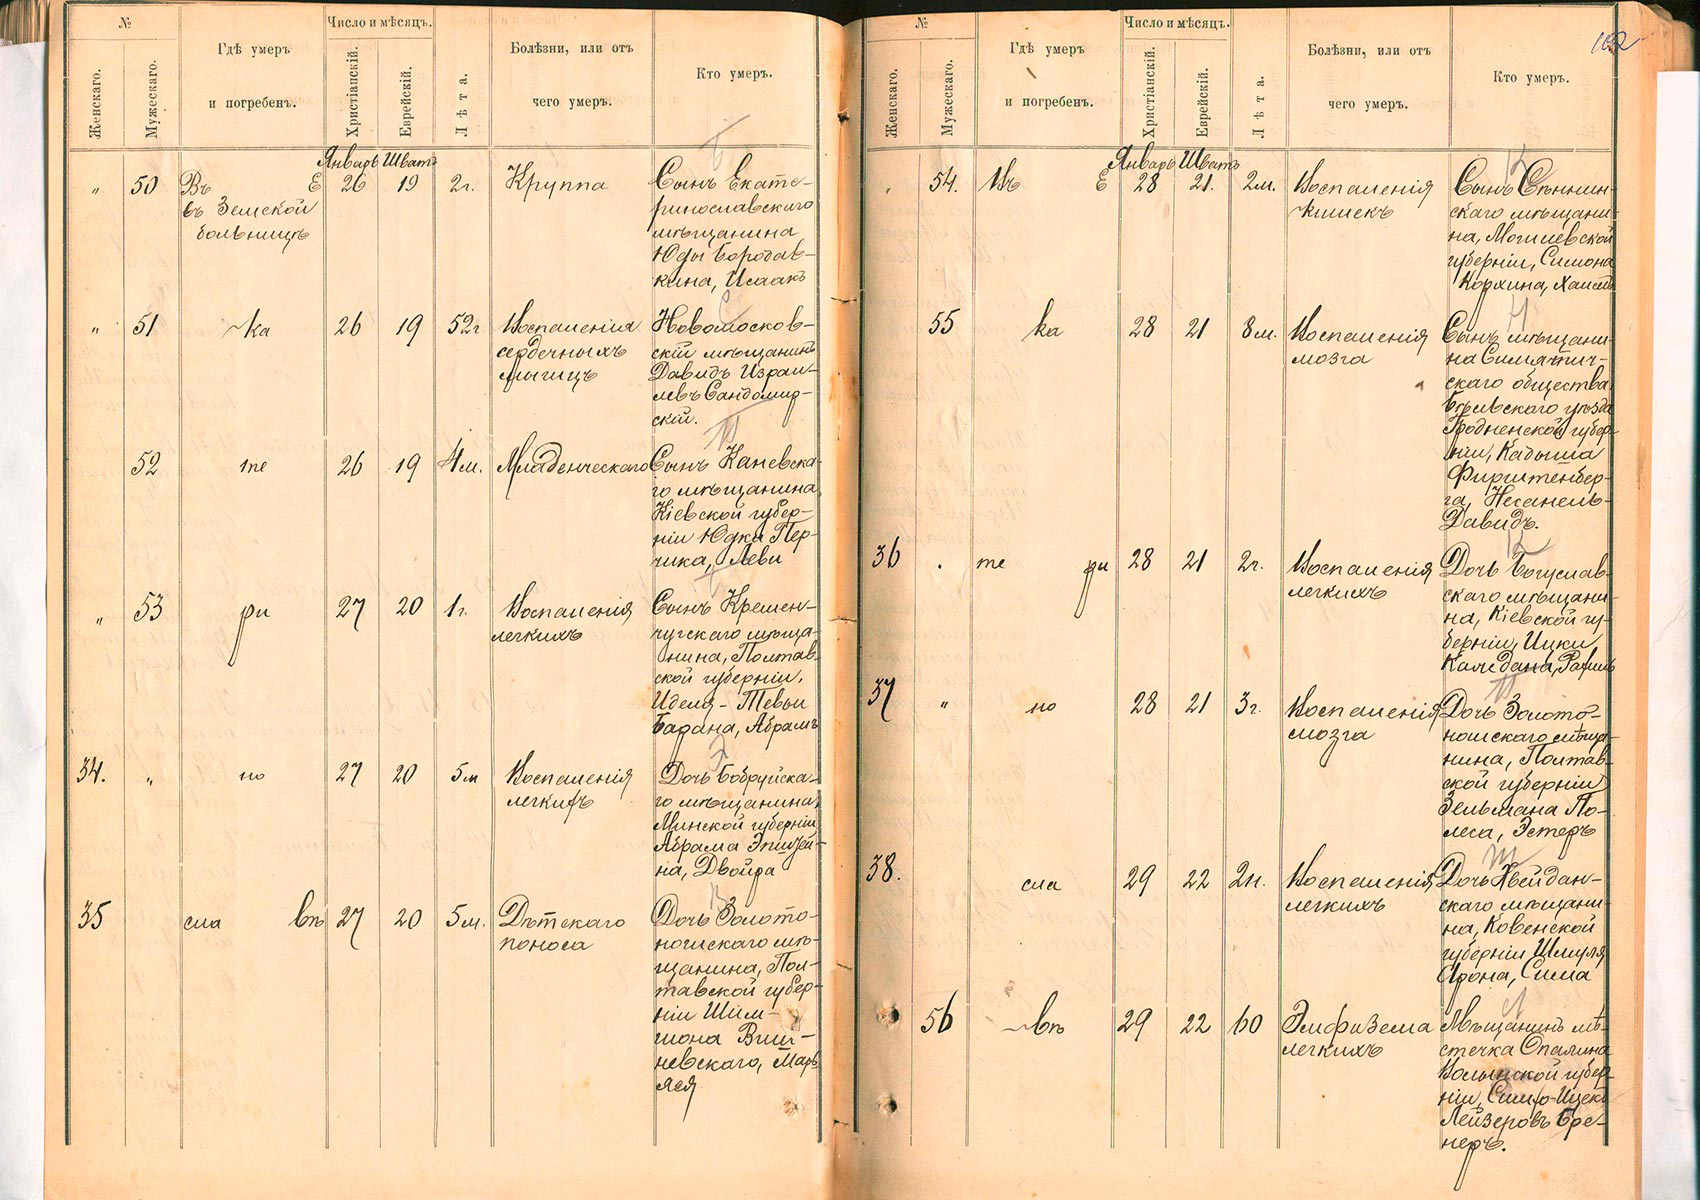 №
Число и мѣсяцъ.
Женскаго.
Мужескаго.
Гдѣ умеръ
и погребенъ.
Христіанскій.
Еврейскій.
Лѣта.
Болѣзни, или отъ
чего умеръ.
Кто умеръ.
Январь Шватъ
" 50 Въ Е 26 19 2 г. Круппа
въ Земской
больницѣ
Сынъ Екате-
ринославскаго
мѣщанина
Юды Бородав-
кина, Исаакъ
" 51 ка 26 19 52 г Воспаленія
сердечныхъ
мышцъ
Новомосков-
скій мѣщанинъ
Давидъ Израи-
левъ Сандомир-
скій.
52 те 26 19 4 м. Младенческаго
Сынъ Каневска-
го мѣщанина,
Кіевской губер-
ніи Юдки Пер-
чика, Леви
" 53 ри 27 20 1 г. Воспаленія
легкихъ
Сынъ Кремен-
чугскаго мѣща-
нина, Полтав-
ской губерніи,
Иделя-Тевьи
Барана, Абрамъ
34. " но 27 20 5 м Воспаленія
легкихъ
Дочь Бобруйска-
го мѣщанина,
Минской губерніи
Абрама Эпштей-
на, Двойра
35 сла вѣ 27 20 5 м. Дѣтскаго
поноса
Дочь Золото-
ношскаго мѣ-
щанина, Пол-
тавской губер-
ніи Шим-
шона Виш-
невскаго, Марь-
яся
102
№
Число и мѣсяцъ.
Женскаго.
Мужескаго.
Гдѣ умеръ
и погребенъ.
Христіанскій.
Еврейскій.
Лѣта.
Болѣзни, или отъ
чего умеръ.
Кто умеръ.
Январь Шватъ
54. Въ Е 28 21. 2 м. Воспаленія
кишекъ
Сынъ Сѣннин-
скаго мѣщани-
на, Могилевской
губерніи, Симона
Коржина,
55 ка 28 21 8 м. Воспаленія
мозга
Сынъ мѣщани-
на Семятич-
скаго общества
Бѣльскаго уѣзда
Гродненской губер-
ніи, Кадыша
Фирштенбер-
га, Несанель-
Давидъ.
36 . те ри 28 21 2 г. Воспаленія
легкихъ
Дочь Богуслав-
скаго мѣщани-
на, Кіевской гу-
берніи, Ицки
Каледана, Рахиль
37 " но 28 21 3 г. Воспаленія
мозга
Дочь Золото-
ношскаго мѣща-
нина, Полтав-
ской губерніи
Зельмана По-
леса, Эстеръ
38. сла 29 22 2 н. Воспаленія
легкихъ
Дочь Квейдан-
скаго мѣщани-
на, Ковенской
губерніи Шмуля
Арона, Сима
56 вѣ 29 22 60 Эмфизема
легкихъ
Мѣщанинъ мѣ-
стечка Опалина
Волынской губер-
ніи,
Лейзеровъ Бре-
неръ.